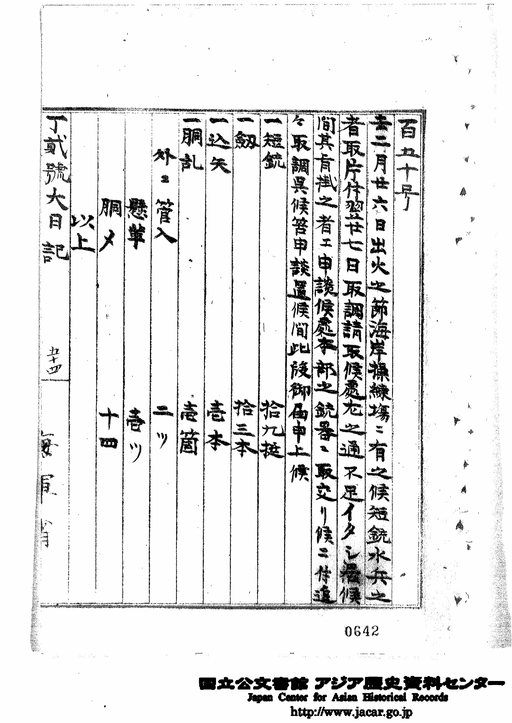 百五十号
去二月廿六日出火之節海岸操練場ニ有之候短銃水兵之
者取片付翌廿七日取調請取候處左之通不足イタシ居候
間其肯掛之者エ申談候處本部之銃器ニ取交リ候ニ付追
々取調具候筈申談置候間此段御届申上候
一短銃 拾九挺
一劔 拾三本
一込矢 壱本
一胴乱 壱箇
外ニ管入 二ツ
懸革 壱ツ
胴〆 十四
以上
丁貳號大日記 五十四 海軍省
0642
国立公文書館 アジア歴史資料センター
Japan Center for Asian Historical Records
http://www.jacar.go.jp